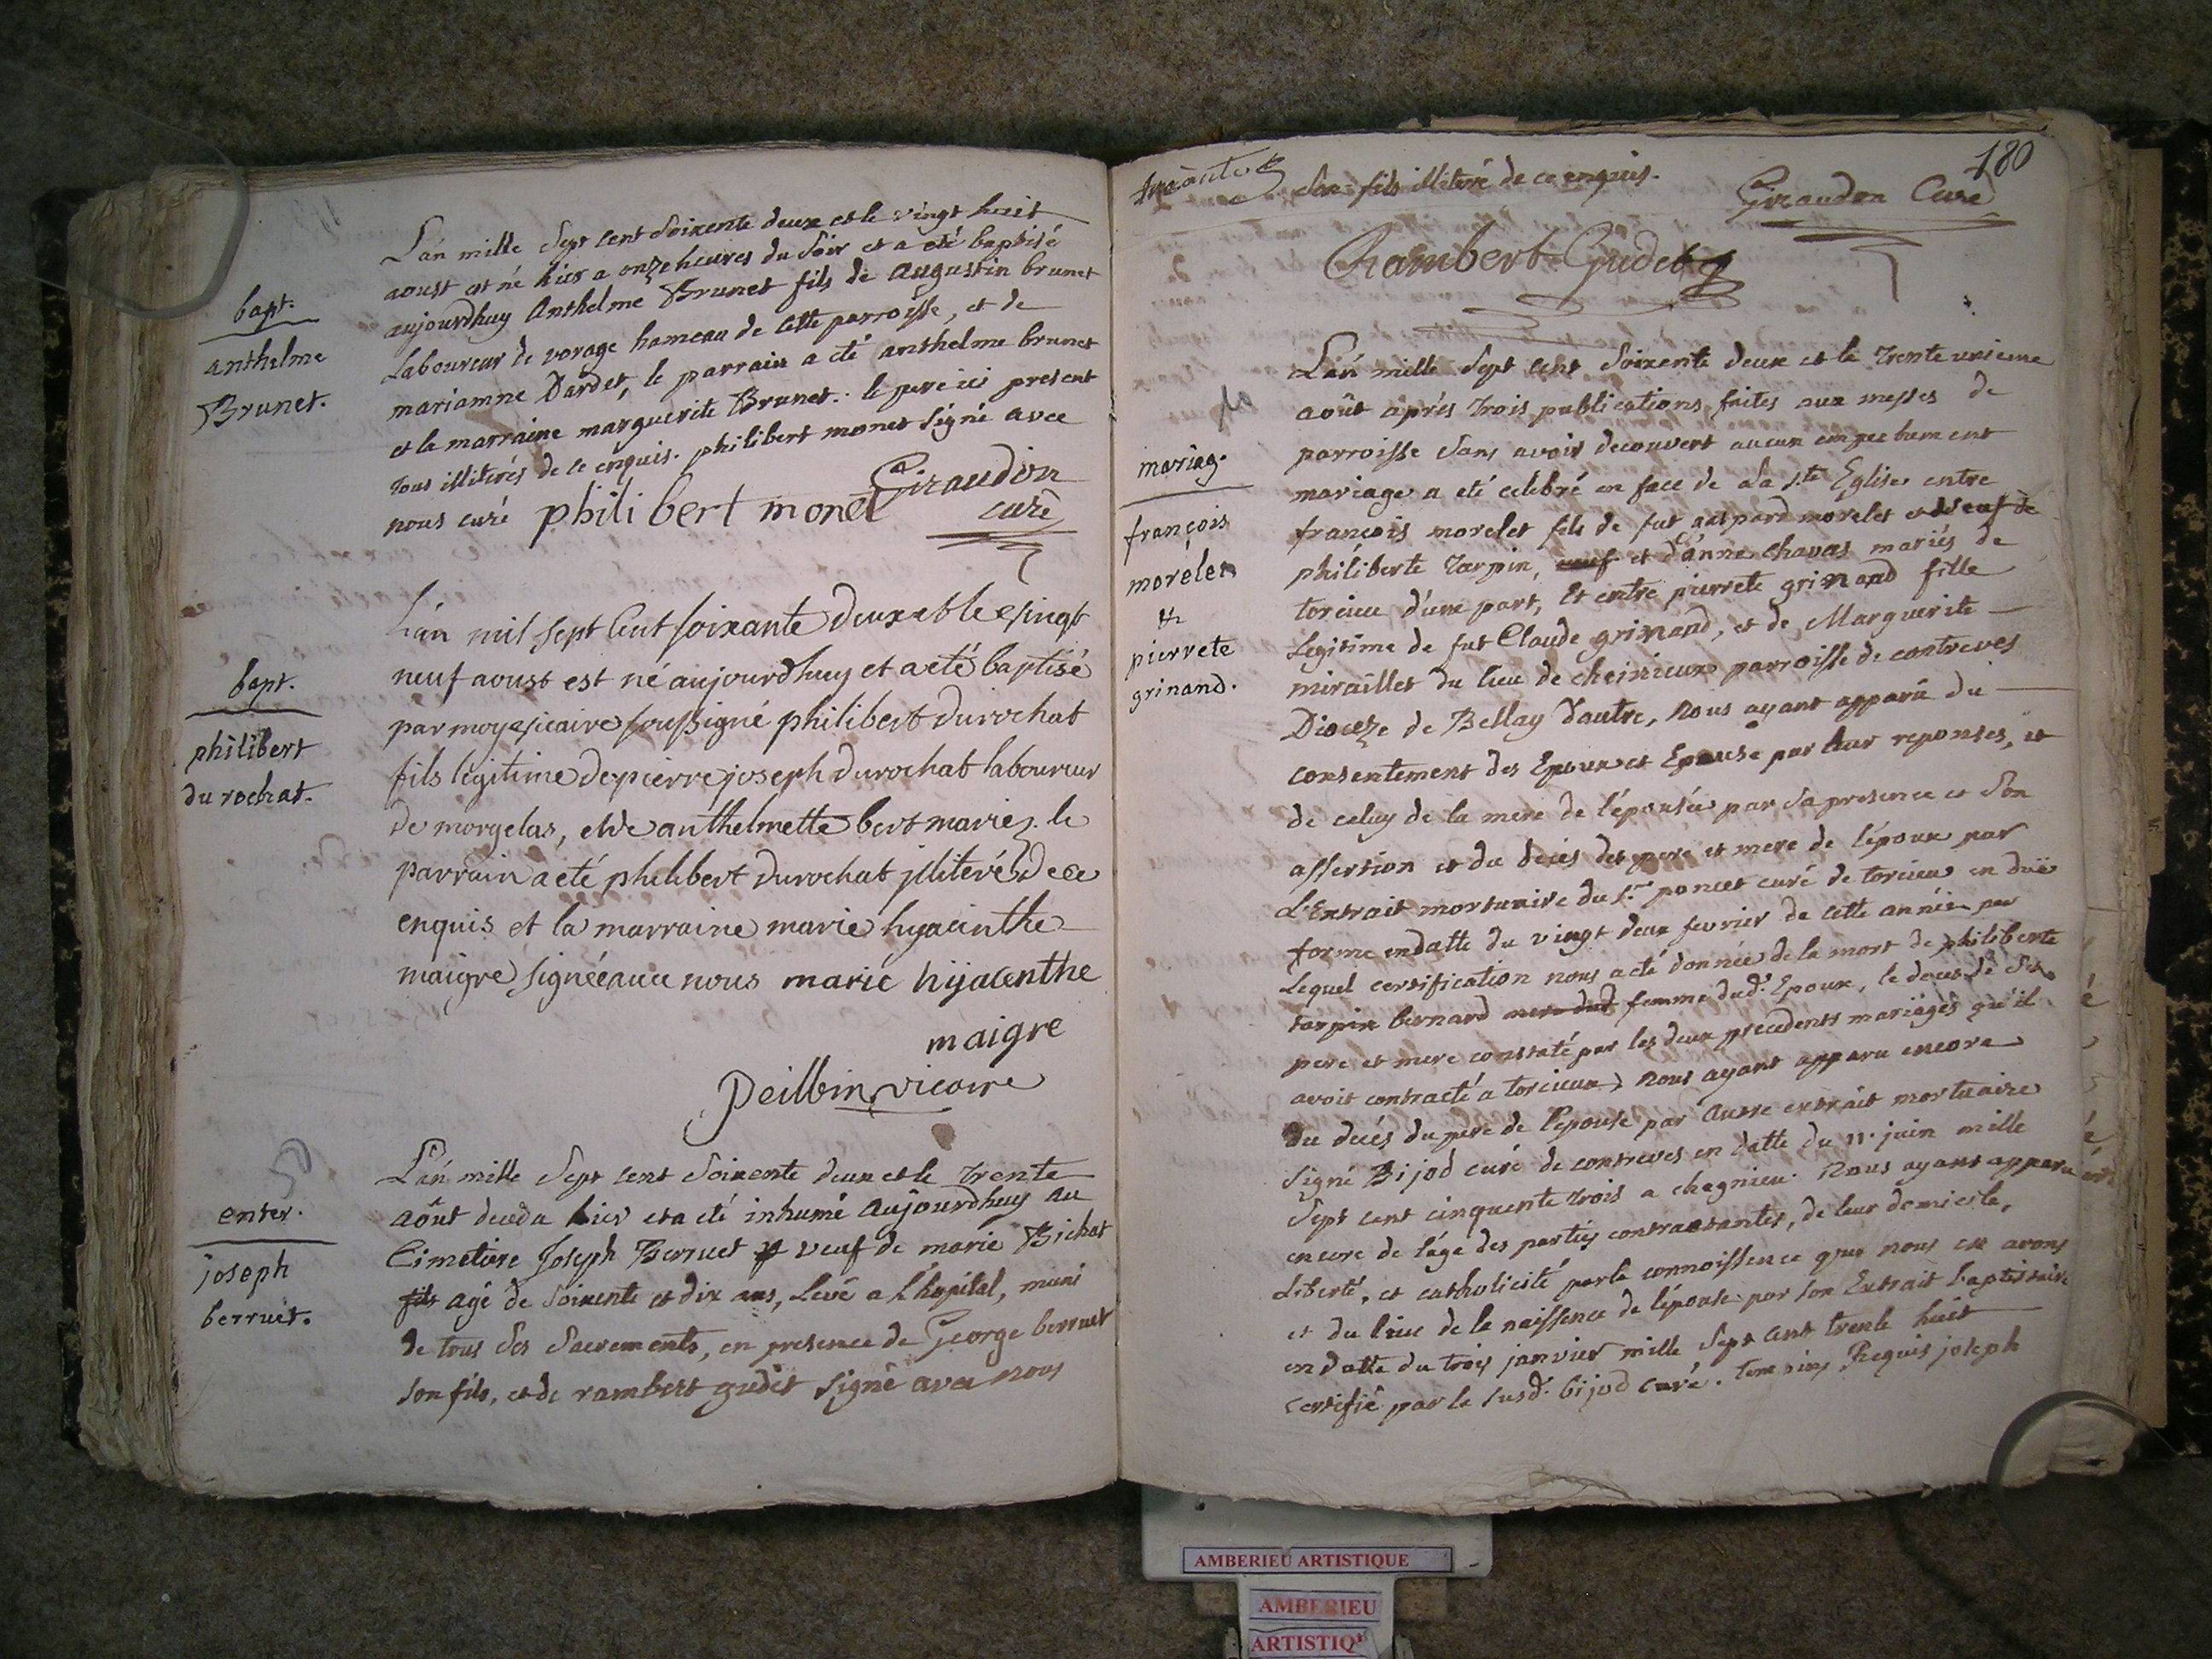 bapt.
anthelme
Brunet.
L'an mille Sept cent Soixente deux et le vingt huit
aoust est né hier a onze heures du Soir et a eté baptisé
aujourdhuy Anthelme Brunet fils de augustin brunet
Laboureur de vorage hameau de cette parroisse, et de
mariamne Dardet, le parrain a eté anthelme brunet
et la marraine marguerite Brunet. le pere ici present
tous illiterés de ce enquis. philibert monet signé avec
nous curé philibert monet Giraudon
curé
bapt.
philibert
du rochat.
L'an mil sept Cent soixante deux et le vingt
neuf aoust est né aujourdhuy et a eté baptisé
par moy vicaire soussigné philibert durochat
fils légitime de pierre joseph durochat laboureur
de morgelas, et de anthelmette bert mariez. le
parrain a eté philibert durochat jlliteré de ce
enquis et la marraine marie hyacinthe
maigre signée avec nous marie hijacenthe
maigre
peillin vicaire
enter.
joseph
berruet.
L'an mille Sept cent Soixente deux et le trente
août deceda hier et a eté inhumé aujourdhuy au
Cimetiere Joseph Berruet veuf de marie Bichat
fils agé de Soixente et dix ans, Levé a L'hopital, muni
de tous Ses Sacrements, en presence de George berruet
son fils, et de rambert gudet signé avec nous
180
Son fils illiteré de ce enquis.
Giraudon Curé
Rambert Gudet
mariag.
françois
morelet
&
pierrete
grinand.
L'an mille Sept cent Soixente deux et le trente unieme
août après trois publications faites aux messes de
parroisse Sans avoir decouvert aucun empechement
mariage a eté celebré en face de La Ste Eglise entre
françois morelet fils de fut gaspard morelet et veuf de
philiberte Tarpin, veuf et d'anne Chavas mariés de
torcieu d'une part, Et entre pierrete grinand fille
Legitime de fut Claude grinand, et de Marguerite
miraillet du lieu de cheinieux parroisse de contreves
Dioceze de Bellay d'autre, nous ayant apparu du
consentement des Epoux et Epouse par leur reponses, et
de celuy de la mere de l'épousée par Sa presence et Son
assertion et du decés des pere et mere de l'époux par
L'Extrait mortuaire du Sr poncet curé de torcieu en duë
forme en datte du vingt deux fevrier de cette année par
Lequel certification nous a eté donnée de la mort de philiberte
tarpin bernard mere dud femme dud. Epoux, le deces de Ses
pere et mere constaté par les deux precedents mariages qu'il
avoit contracté a torcieux, nous ayant apparu encore
du decés du pere de l'epouse par autre extrait mortuaire
signé Bijod curé de contreves en datte du 11. juin mille
Sept cent cinquente trois a chegnieu. Nous ayant apparu
encore de l'age des parties contractantes, de leur domicile,
Liberté, et catholicité par la connoissence que nous en avons
et du lieu de la naissence de l'épouse par son Extrait baptistaire
en datte du trois janvier mille Sept cent trente huit
certifié par le susd. bijod curé. temoins Requis joseph
AMBERIEU ARTISTIQUE
AMBERIEU
ARTISTIQ